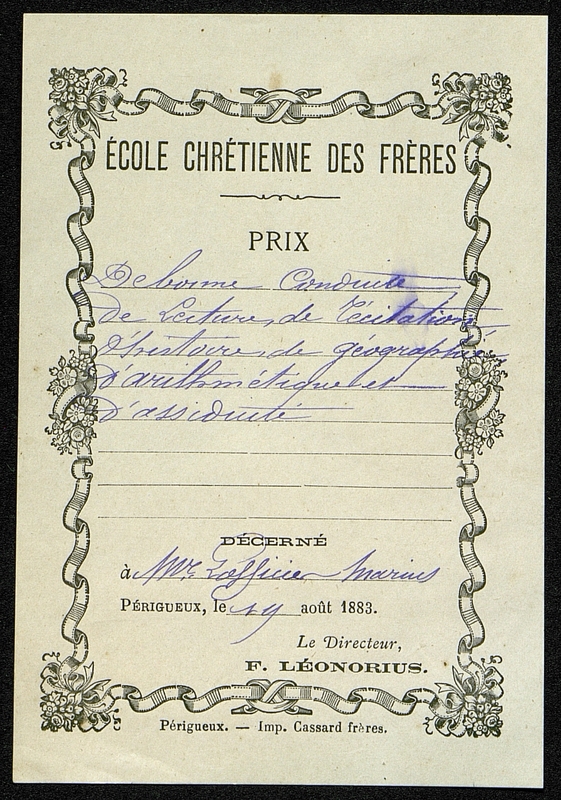 ÉCOLE CHRÉTIENNE DES FRÈRES
PRIX
De bonne Conduite
de Lecture, de Récitation
d'histoire, de géographie,
d'arithmétique et
d'assiduité
DÉCERNÉ
à Mr Lafficier Marius
PÉRIGUEUX, le 14 août 1883.
Le Directeur,
F. LÉONORIUS.
Périgueux. — Imp. Cassard frères.